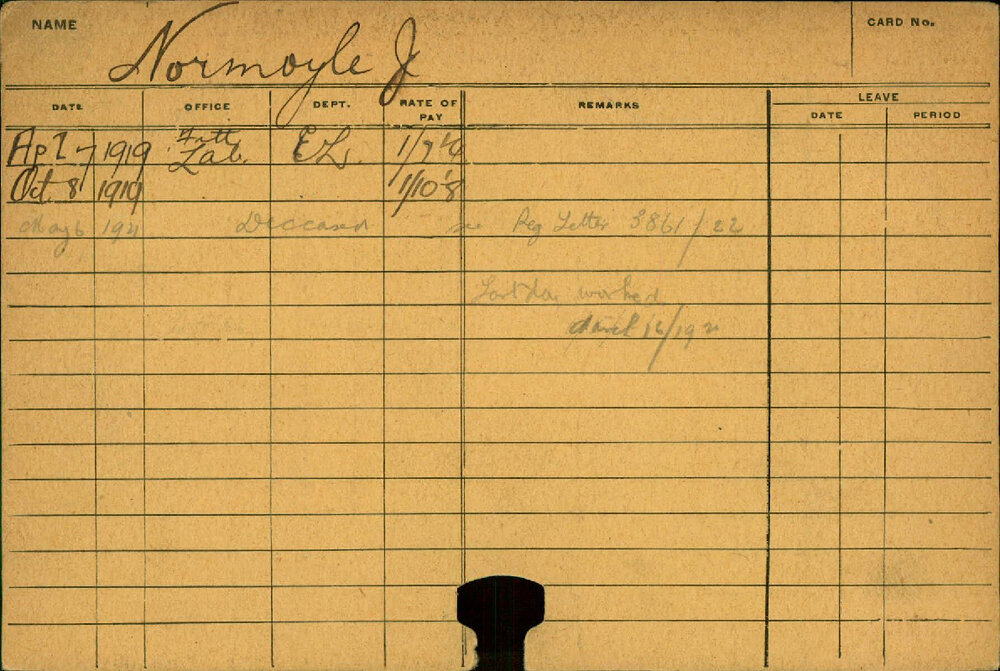 NAME Normoyle J CARD No.
DATE OFFICE DEPT. RATE OF PAY REMARKS LEAVE
DATE PERIOD
Apl 7 1919 Lab. 
Oct. 8 1919 1/10
May 6 192 Deceased Reg Letter 3861/22
Last day worked
April 16/192